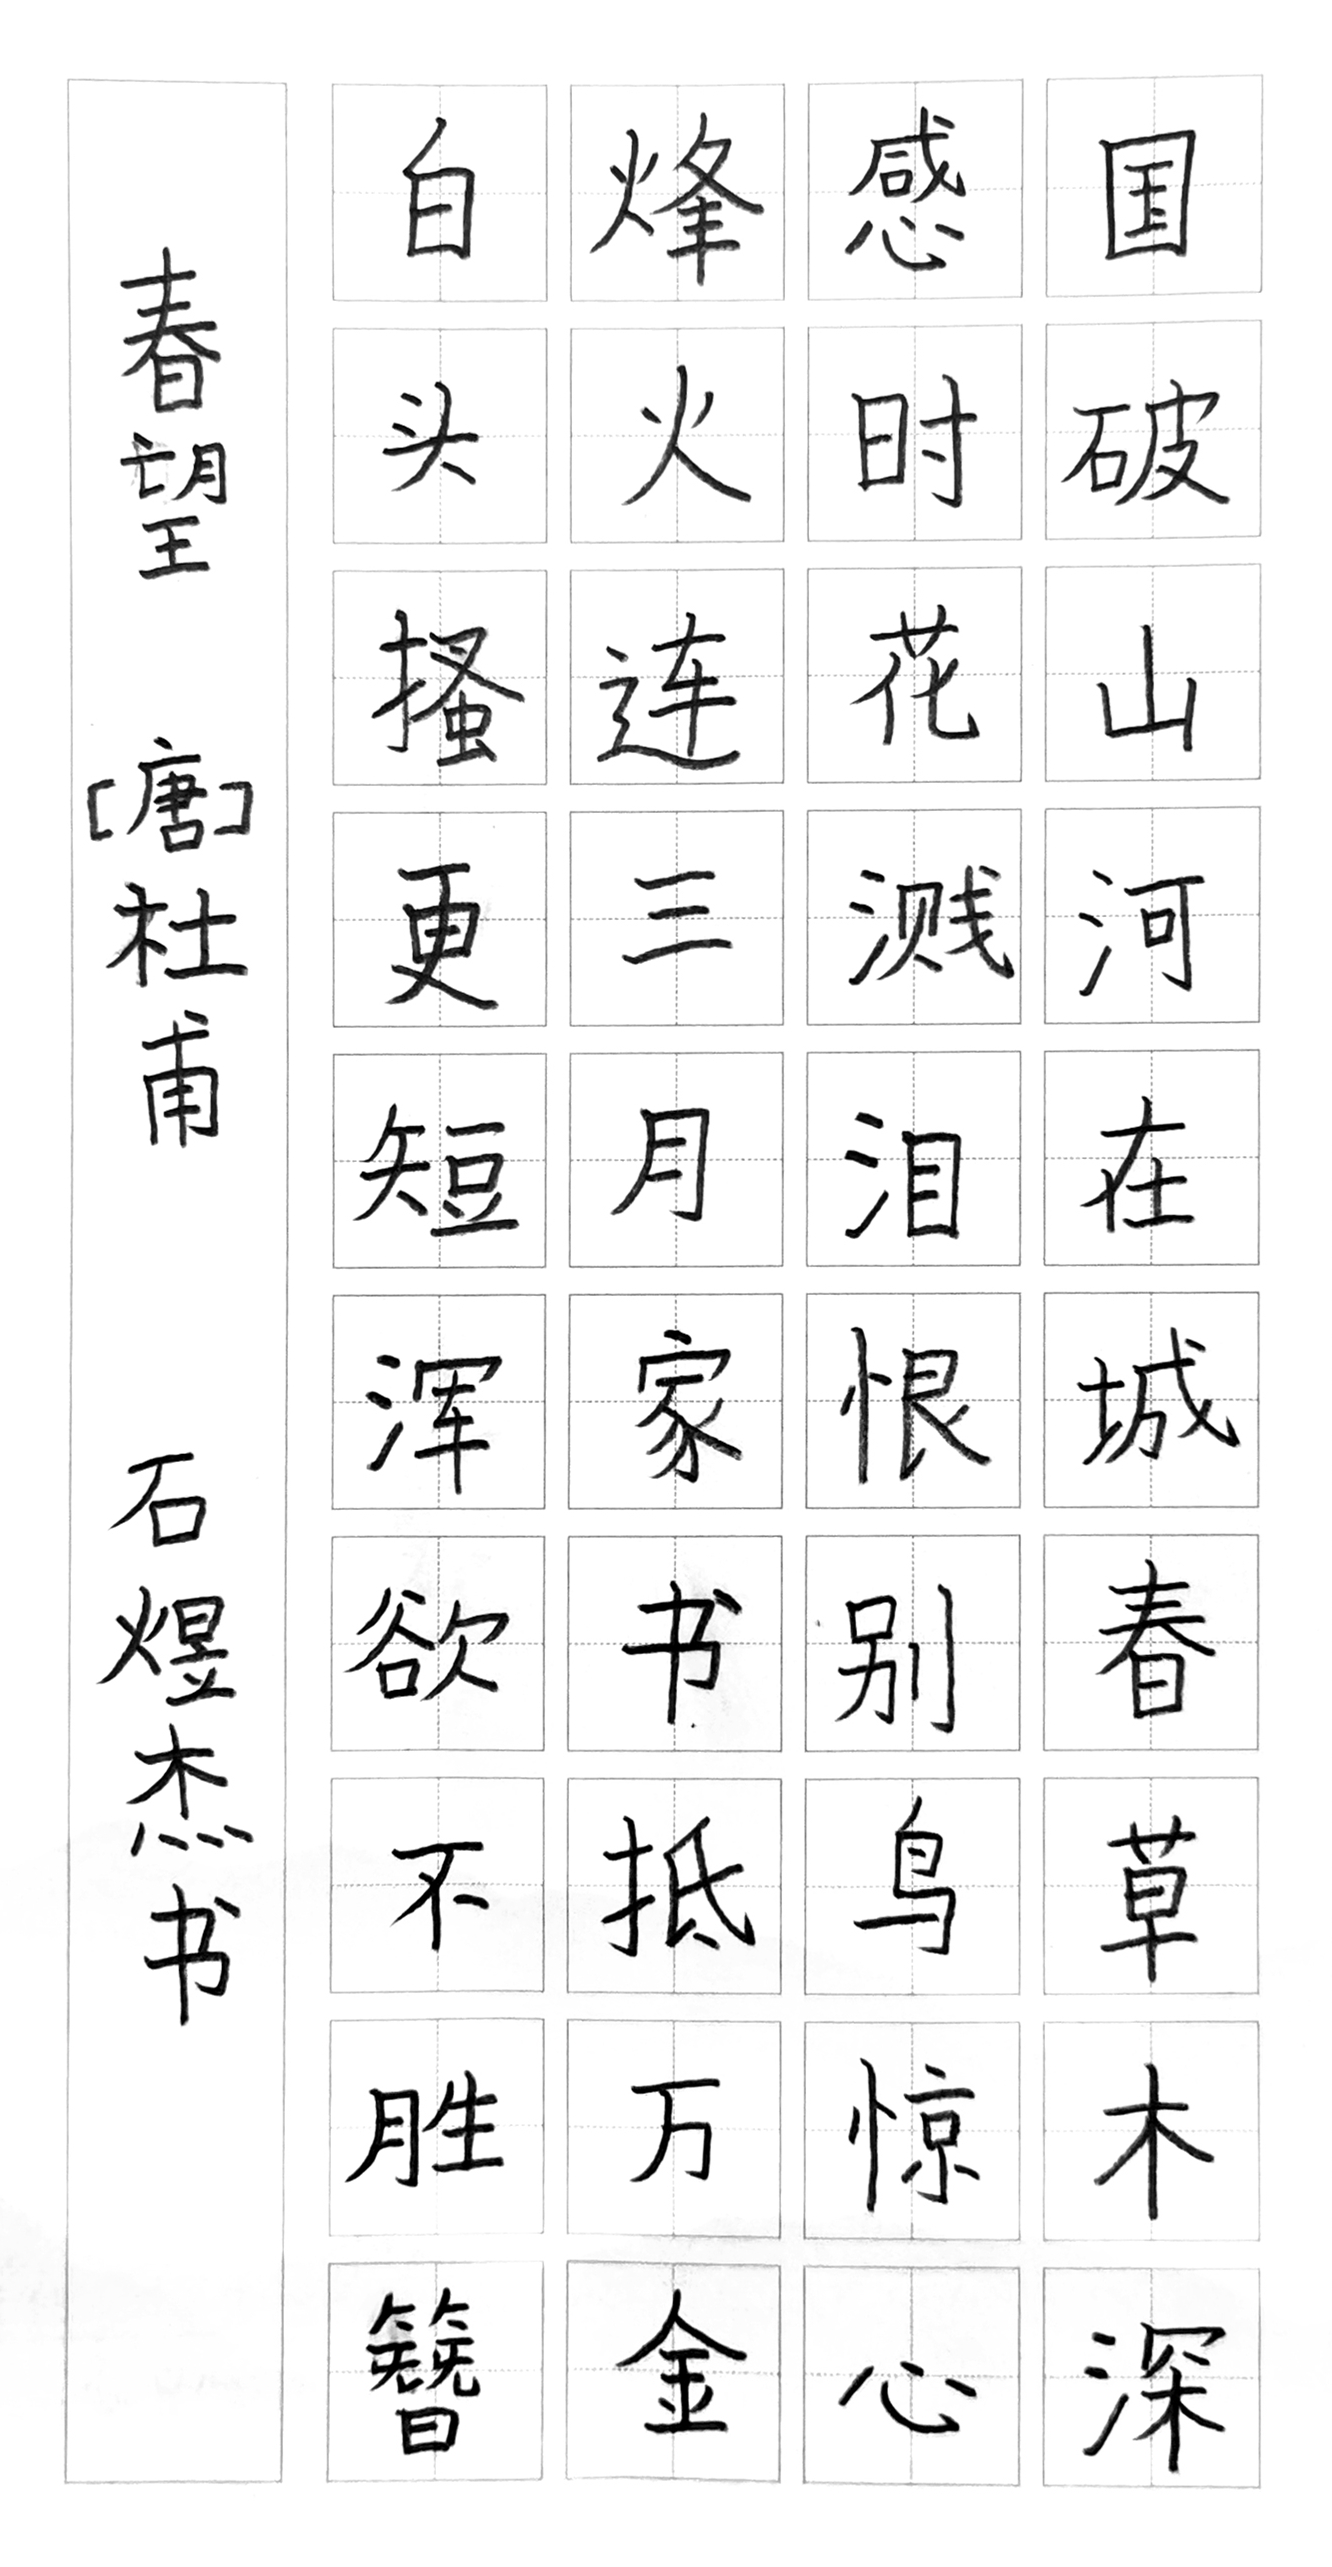 国破山河在城春草木深
感时花溅泪恨别鸟惊心
烽火连三月家书抵万金
白头搔更短浑欲不胜簪
春望 [唐]杜甫 石煜杰书